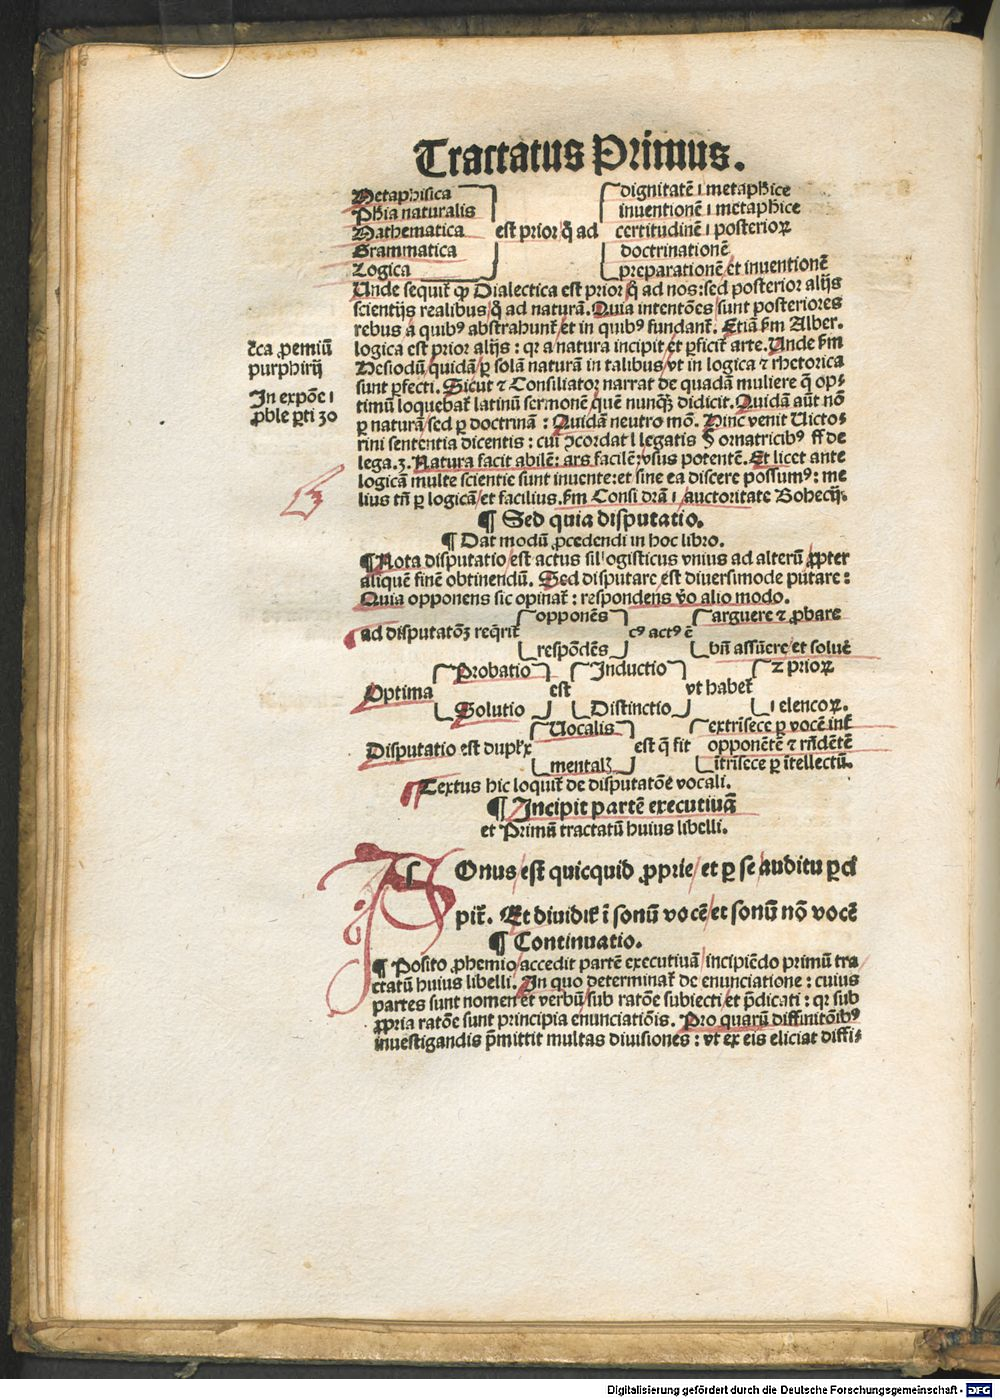 Tractatus Primus.
Metaphisica dignitatē ı metaphice
Phīa naturalis inventionē ı metaphice
Mathematica est prior q̄ ad certitudinē ı posterioꝝ
Grammatica doctrinationē
Logica preparationē et inventionē
Unde sequit̄ ꝙ Dialectica est prior q̄ ad nos: sed posterior alijs
scientijs realibus q̄ ad naturā. Quia intentōes sunt posteriores
rebus a quibꝰ abstrahunt̄ et in quibꝰ fundant̄. Etiā ẜm Alber.
logica est prior alijs: qr a natura incipit et ꝑficit̄ arte. Unde ẜm
Hesiodū quidā ꝑ solā naturā in talibus vt in logica ⁊ rhetorica
sunt ꝑfecti. Sicut ⁊ Consiliator narrat de quadā muliere q̄ op-
timū loquebat̄ latinū sermonē quē nunqꝫ didicit. Quidā aūt nō
ꝑ naturā sed ꝑ doctrinā: Quidā neutro mō. Hinc venit Victo-
rini sententia dicentis: cui ꝯcordat l legatis § ornatricibꝰ ff de
lega.3. Natura facit abilē: ars facilē: vsus potentē. Et licet ante
logicā multe scientie sunt invente: et sine ea discere possumꝰ: me
lius tn̄ ꝑ logicā et facilius. ẜm Consi drā ı auctoritate Bohecij.
c̄ca ꝓemiū
purphirij
In expōe ı
ꝓble ꝑti 30
¶ Sed quia disputatio.
¶ Dat modū ꝓcedendi in hoc libro.
¶ Nota disputatio est actus sillogisticus vnius ad alterū ꝓpter
aliquē finē obtinendū. Sed disputare est diversimode putare:
Quia opponens sic opinat̄: respondens v̄o alio modo.
opponēs arguere ⁊ ꝓbare
ad disputatōꝫ req̄rit̄ cꝰ actꝰ ē
respōdēs bn̄ assūere et solue͛
Probatio Inductio ⁊ prioꝝ
Optima est vt habet̄
Solutio Distinctio ı elencoꝝ.
Vocalis extrīsece ꝑ vocē int̄
Disputatio est duplx est q̄ fit opponētē ⁊ rn̄dētē
mentalꝫ ītrīsece ꝑ ītellectū.
Textus hic loquit̄ de disputatōe vocali.
¶ Incipit partē executivā
et Primū tractatū huius libelli.
SOnus est quicquid ꝓprie et ꝑ se auditu ꝑci
pit̄. Et dividit̄ ī sonū vocē et sonū nō vocē
¶ Continuatio.
¶ Posito ꝓhemio accedit partē executivā incipiēdo primū tra
ctatū huius libelli. In quo determinat̄ de enunciatione: cuius
partes sunt nomen et verbū sub ratōe subiecti et p̄dicati: qr sub
ꝓpria ratōe sunt principia enunciatiōis. Pro quarū diffinitōibꝰ
investigandis p̄mittit multas divisiones: vt ex eis eliciat diffi-
Digitalisierung gefördert durch die Deutsche Forschungsgemeinschaft - DFG